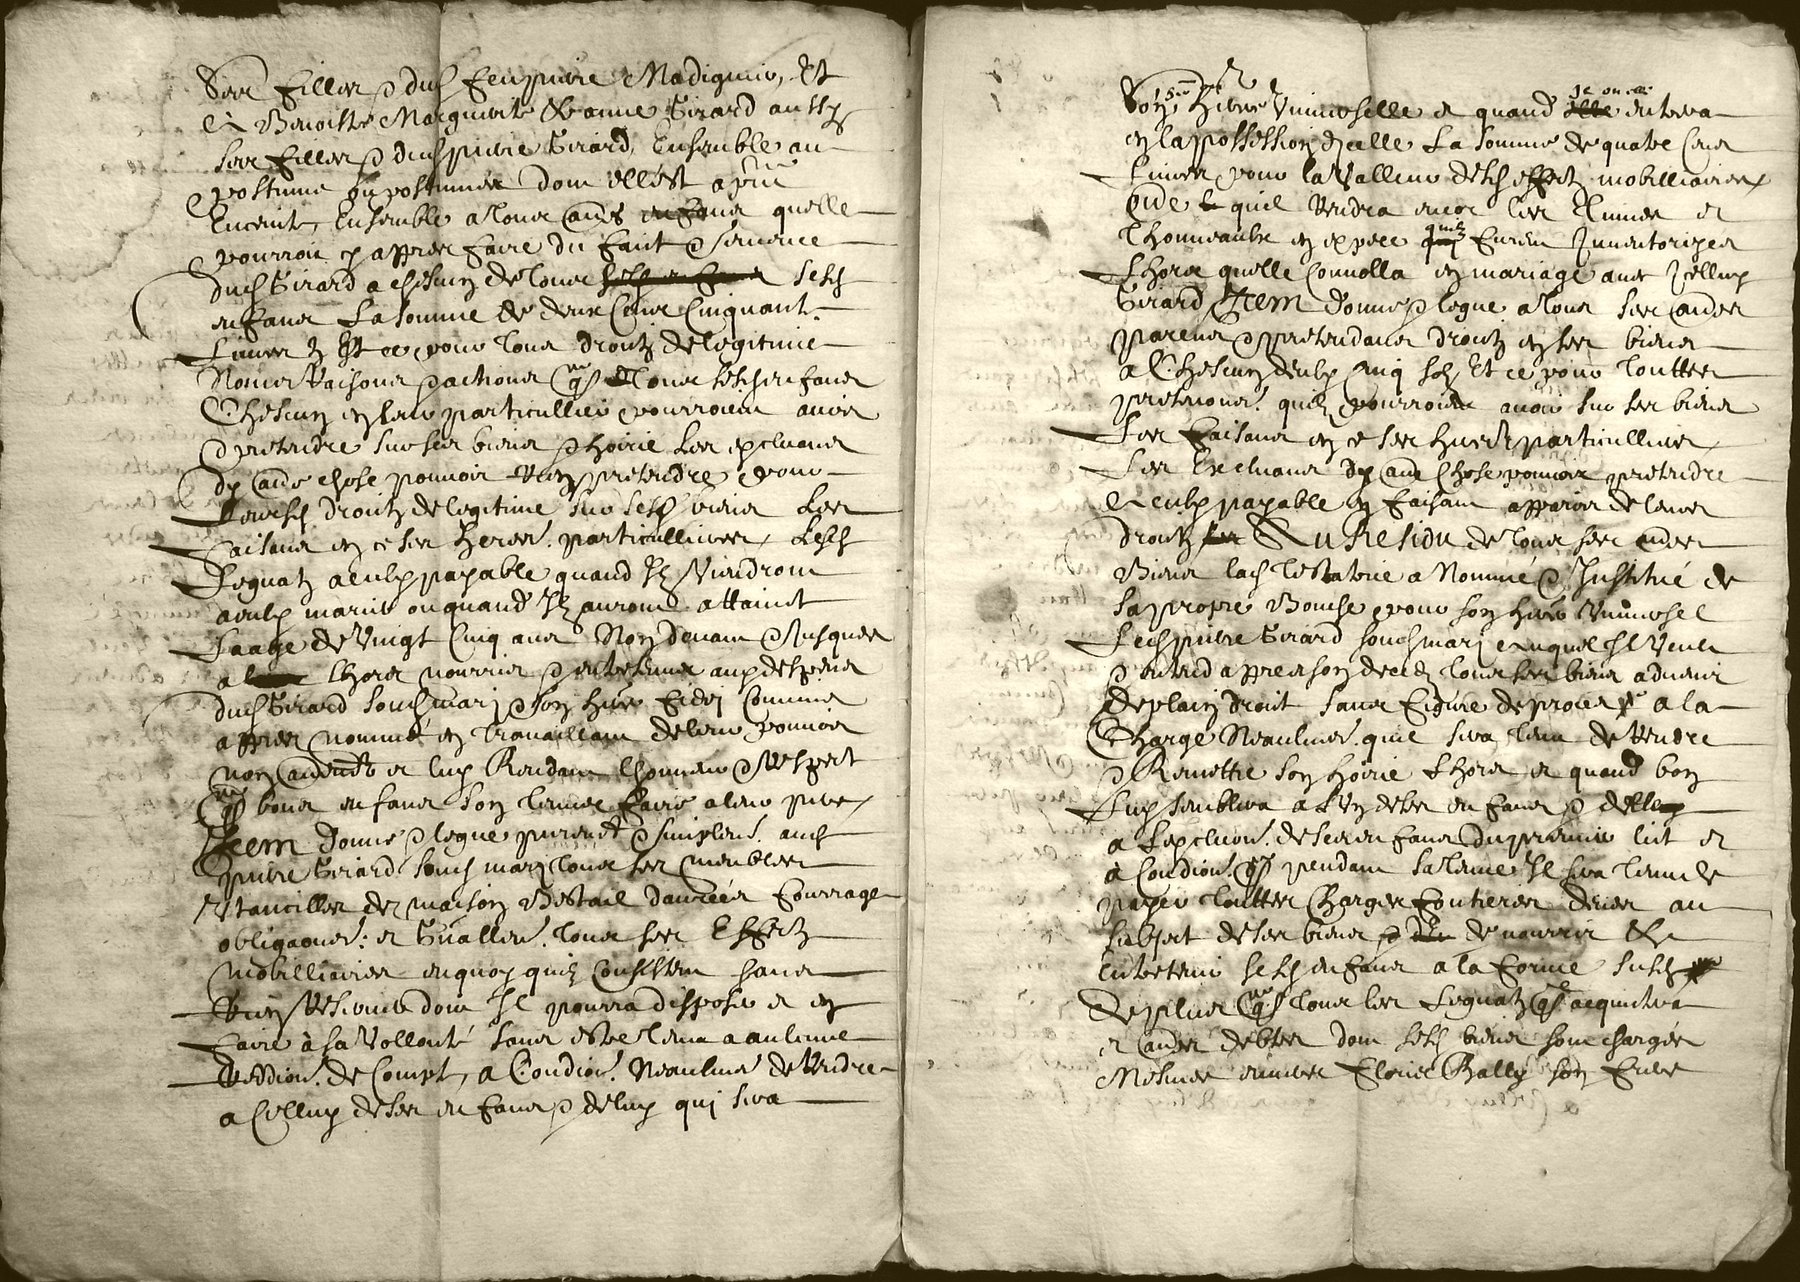 ses filles & dud feu pierre Madignier, Et
& Benoiste Marguerite & anne Girard aussy
ses filles & dud pierre Girard, Ensemble au
postume ou postumes dont ell'est a pnt
Enceinte, Ensemble a tous aues enfans quelle
pourroit cy appres faire du faict & semence
dud Girard a chescung de tous sesd
enfans La somme de deux Cens Cinquante
Livres Et ce pour tous droictz de legitime
Noms Raisons & actions que tous sesd enfans
Chescung en leur particullier pourroient avoir
& pretendre sur ses biens & hoirie Les excluant
dy aue chose pouvoir Rien pretendre pour
leursd droictz de legitime sur sesd biens Les
faisant en ce ses heres. particulliers, Lesd
Legatz a eulx payable quand Ilz viendront
a eulx marier ou quand Ilz auront attainct
Laage de vingt Cinq ans Non devant & Jusques
a lhors nourris & entretenus aux despens
dud Girard sond mary & son hier comme
appres nommé en travaillant de leur pouvoir
non auement et luy Rendant lhonneur & Respect
que bons enfans son tenus faire a leur pere,
Item donne & legue purement & simplemt. aud
pierre Girard sond mary tous ses meubles
Utancilles de maison Bestail danrées fourrage
obligaons. et Guallem. tous ses Effectz
mobilliaires en quoy quilz consistent sans
Rien Reserver dont Il pourra disposer et en
faire à sa vollonté sans estre tenu a aulcune
Reddion. de Compte, a Condion. Neaulmes de Rendre
a Celluy de ses enfans & de luy qui sera
son hier universelle et quand Il ou elle entrera
en la possession dicelle La somme de quatre Cens
Livres pour la valleur desd effectz mobilliaires
oultre quil Rendra encor les Linges et
Thonneaulx en espece quilz furent Inventorizes
Lhors quelle convolla en mariage avec Icelluy
Girard Item donne & legue a tous ses aues
parens & pretendans droictz en ses biens
a Chescung deulx Cinq solz Et ce pour touttes
pretenions. quilz pourroient avoir sur ses biens
Les faisant en ce ses hiers particulliers
Les Excluant dy aue Chose pouvoir pretendre
& eulx payable en faisant apparoir de leurs
droictz Au Residu de tous ses aues
Biens lad testatrice a Nommé & Institué de
sa propre Bouche pour son hier universel
Led pierre Girard sond mary auquel Il veult
& entend appres son deces tous ses biens advenir
de plain droict sans figure de proces a la
Charge Neaulmes. quil sera tenu de Rendre
& Remettre son hoirie Lhors et quand bon
Luy semblera a Lun de ses enfans & delle
a Lexcluon. de ses enfans du premier lict et
à Condion. que pendant sa tenue Il sera tenu de
payer touttes Charges fontieres deues au
subject de ses biens & de nourrir &
entretenir sesd enfans a la forme susd
de plus que tous les Legatz quil acquittera
et aues debtes dont sesd biens son chargés
Mesmes envers Bally son frere